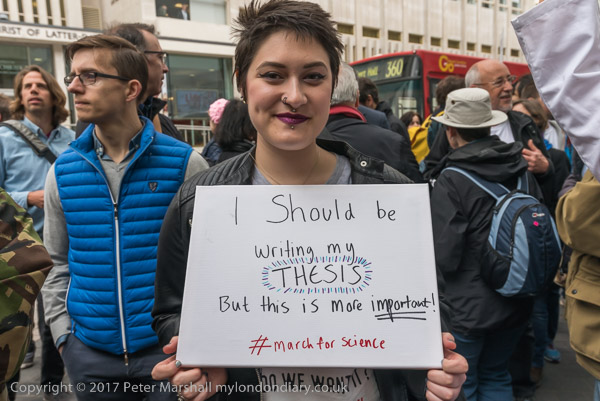 RIST OF LATTER-
360
Go
I Should be
writing my
THESIS
But this is more important!
#march for science
Copyright © 2017 Peter Marshall mylondondiary.co.uk